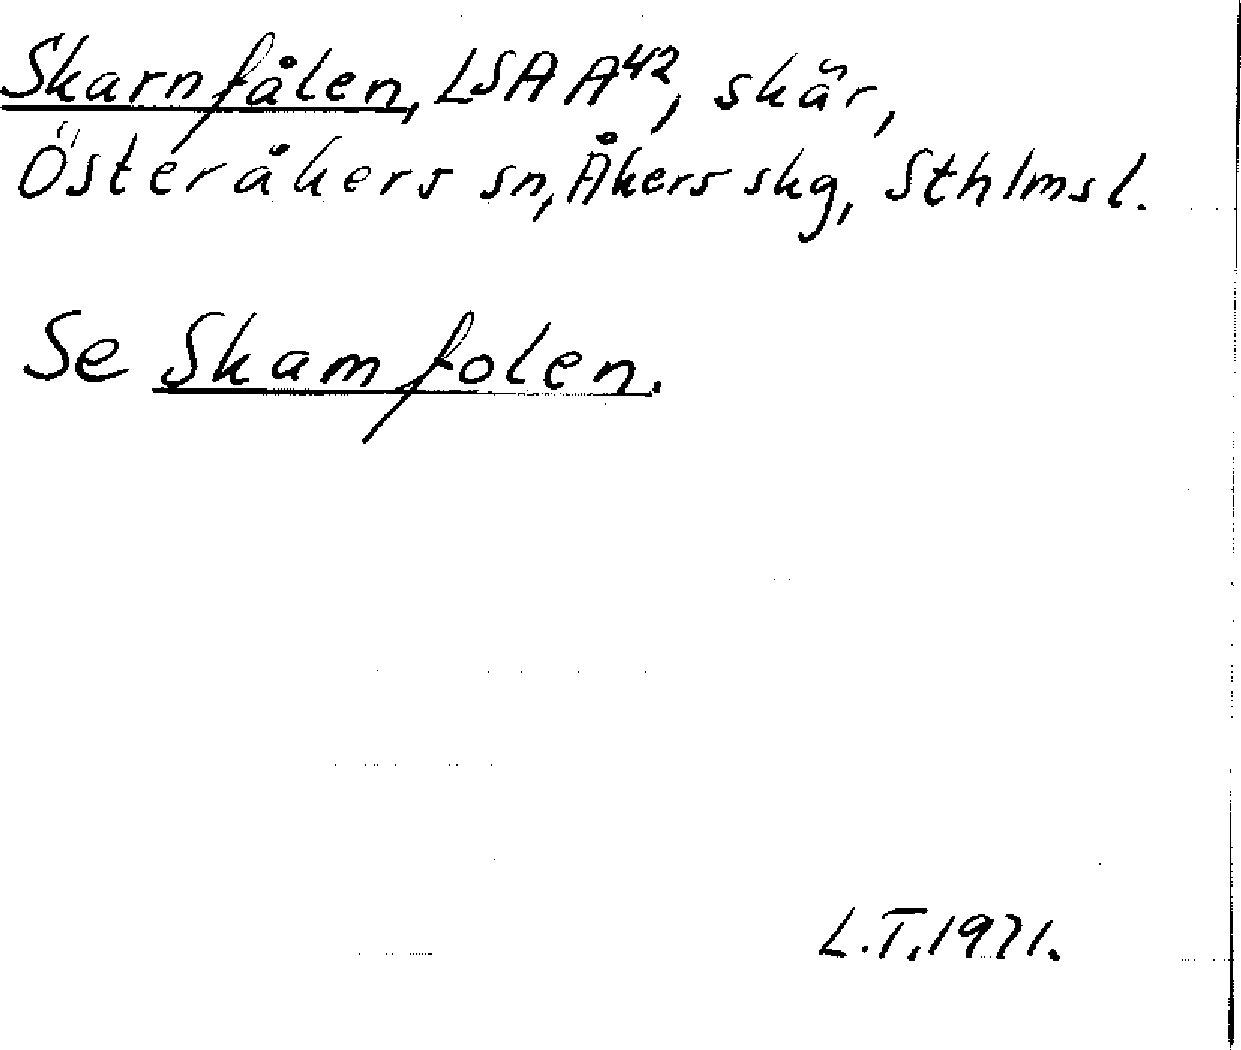 Skarnfålen, LSA A42, skär,
Österåkers sn, Åkers skg, Sthlms l.
Se Skamfolen.
L.T. 1971.